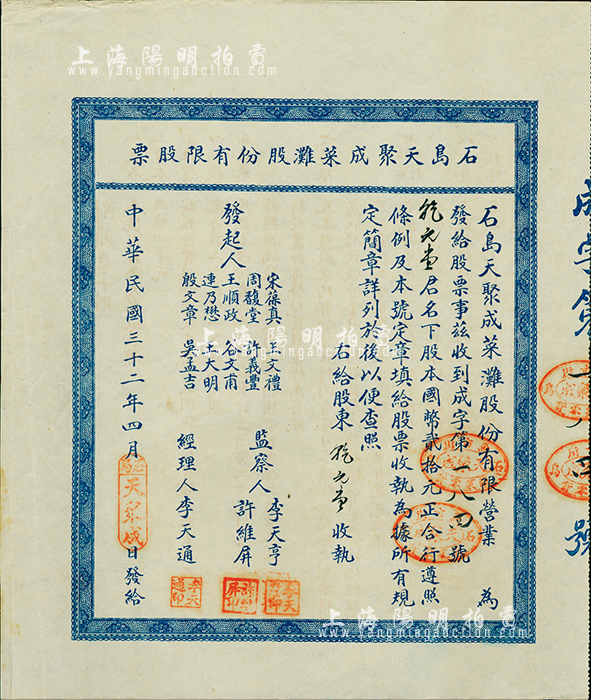 上海陽明拍賣
www.yangmingauction.com
石島天聚成菜灘股份有限股票
石島天聚成菜灘股份有限營業 為
發給股票事茲收到成字第一八四號
乾元堂君名下股本國幣貳拾元正合行遵照
條例及本號定章填給股票收執為據所有規
定簡章詳列於後以便查照
右給股東 乾元堂 收執
發起人
宋葆真 王文禮
周馥堂 許義豐
王順政 谷文甫
連乃懋 王大明
殷文章 吳孟吉
監察人 李天亨
許維屏
經理人 李天通
中華民國三十二年四月 日發給
石島
天聚成
李天通印
成字第一八四號
上海陽明拍賣
www.yangmingauction.com